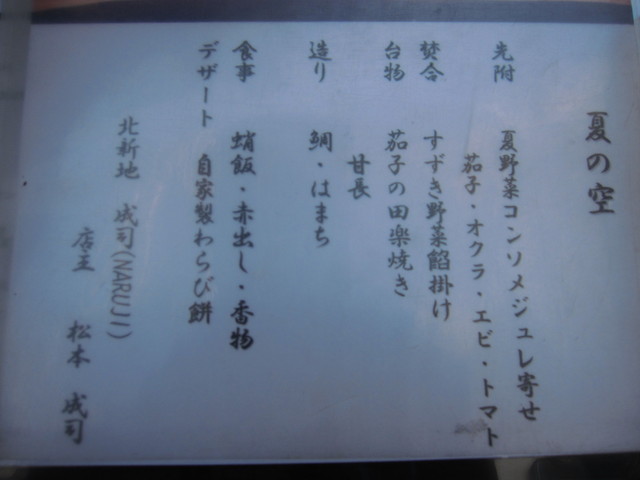 夏の空
先附 夏野菜コンソメジュレ寄せ
茄子・オクラ・エビ・トマト
焚合 すずき野菜餡掛け
台物 茄子の田楽焼き
甘長
造り 鯛・はまち
食事 蛸飯・赤出し・香物
デザート 自家製わらび餅
北新地 成司(NARUJI)
店主 松本 成司